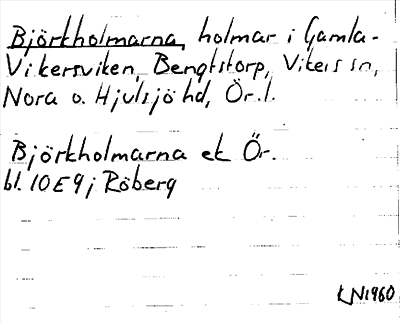 Björkholmarna, holmar i Gamla-
Vikersviken, Bengtstorp, Vikers sn,
Nora o. Hjulsjö hd, Ör. l.
Björkholmarna ek Ör.
bl. 10E9j Röberg
KN1960